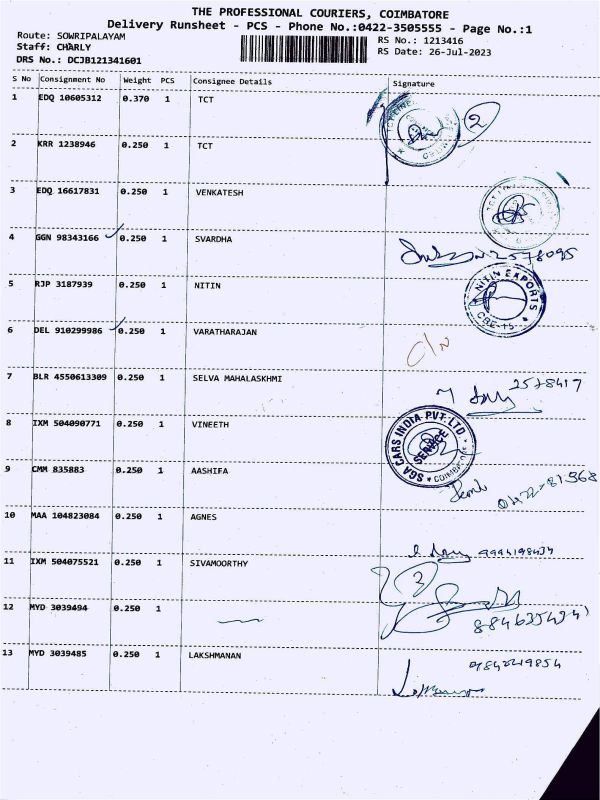 THE PROFESSIONAL COURIERS, COIMBATORE
Delivery Runsheet - PCS - Phone No.:0422-3505555 - Page No.:1
Route: SOWRIPALAYAM
RS No.: 1213416
Staff: CHARLY
RS Date: 26-Jul-2023
DRS No.: DCJB121341601
S No Consignment No Weight PCS Consignee Details Signature
1 EDQ 10605312 0.370 1 TCT
2
2 KRR 1238946 0.250 1 TCT
3 EDQ 16617831 0.250 1 VENKATESH
4 GGN 98343166 0.250 1 SVARDHA
2578095
5 RJP 3187939 0.250 1 NITIN
NITIN EXPORTS
CBE-15
6 DEL 910299986 0.250 1 VARATHARAJAN
7 BLR 4550613309 0.250 1 SELVA MAHALASKHMI
2578417
8 IXM 504090771 0.250 1 VINEETH
SGA CARS INDIA PVT LTD
SERVICE
COIMBATORE
9 CMM 835883 0.250 1 AASHIFA
10 MAA 104823084 0.250 1 AGNES
11 IXM 504075521 0.250 1 SIVAMOORTHY
3
12 MYD 3039494 0.250 1
13 MYD 3039485 0.250 1 LAKSHMANAN